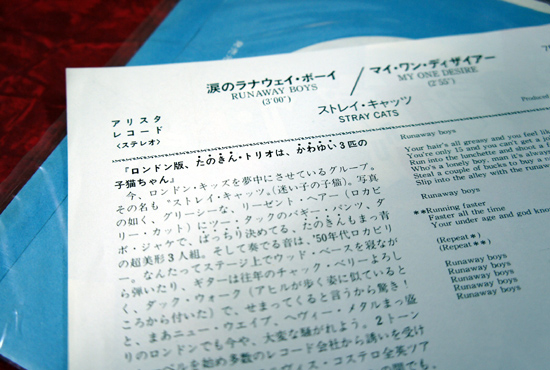 涙のラナウェイ・ボーイ / マイ・ワン・ディザイアー
RUNAWAY BOYS MY ONE DESIRE
(3'00″) (2'55″)
ストレイ・キャッツ
STRAY CATS
アリスタ
レコード
<ステレオ>
Produced
『ロンドン版、たのきん・トリオは、かわゆい3匹の
子猫ちゃん』
今、ロンドン・キッズを夢中にさせているグループ。
その名も“ストレイ・キャッツ。(迷い子の子猫)。写真
の如く、グリーシーな、リーゼント・ヘアー(ロカビ
リー・カット)にツー・タックのバギー・パンツ、ダ
ボ・ジャケで、ばっちり決めてる、たのきんもまっ青
の超美形3人組。そして奏でる音は、'50年代ロカビリ
ー。なんたってステージ上でウッド・ベースを寝なが
ら弾いたり、ギターは往年のチャック・ベリーよろし
く、ダック・ウォーク(アヒルが歩く姿に似ていると
ころから付いた)で、せまってくると言うから驚き!
と、まあニュー・ウエイブ、ヘヴィー・メタルまっ盛
りのロンドンでも今や、大変な騒がれよう。2トーン
ベルを始め多数のレコード会社から誘いを受け
ヴィス・コステロ全英ツア
Runaway boys
Your hair's all greasy and you feel
You're only 15 and you can't get a
Run into the lunchette and shoot a
Who's a lonely boy, man it's alway
Steal a couple of bucks to buy a
Slip into the alley with the runaw
Runaway boys
**Running faster
Faster all the time
Your under age and god know
(Repeat *)
(Repeat **)
Runaway boys
Runaway boys
Runaway boys
Runaway boys
Runaway boys